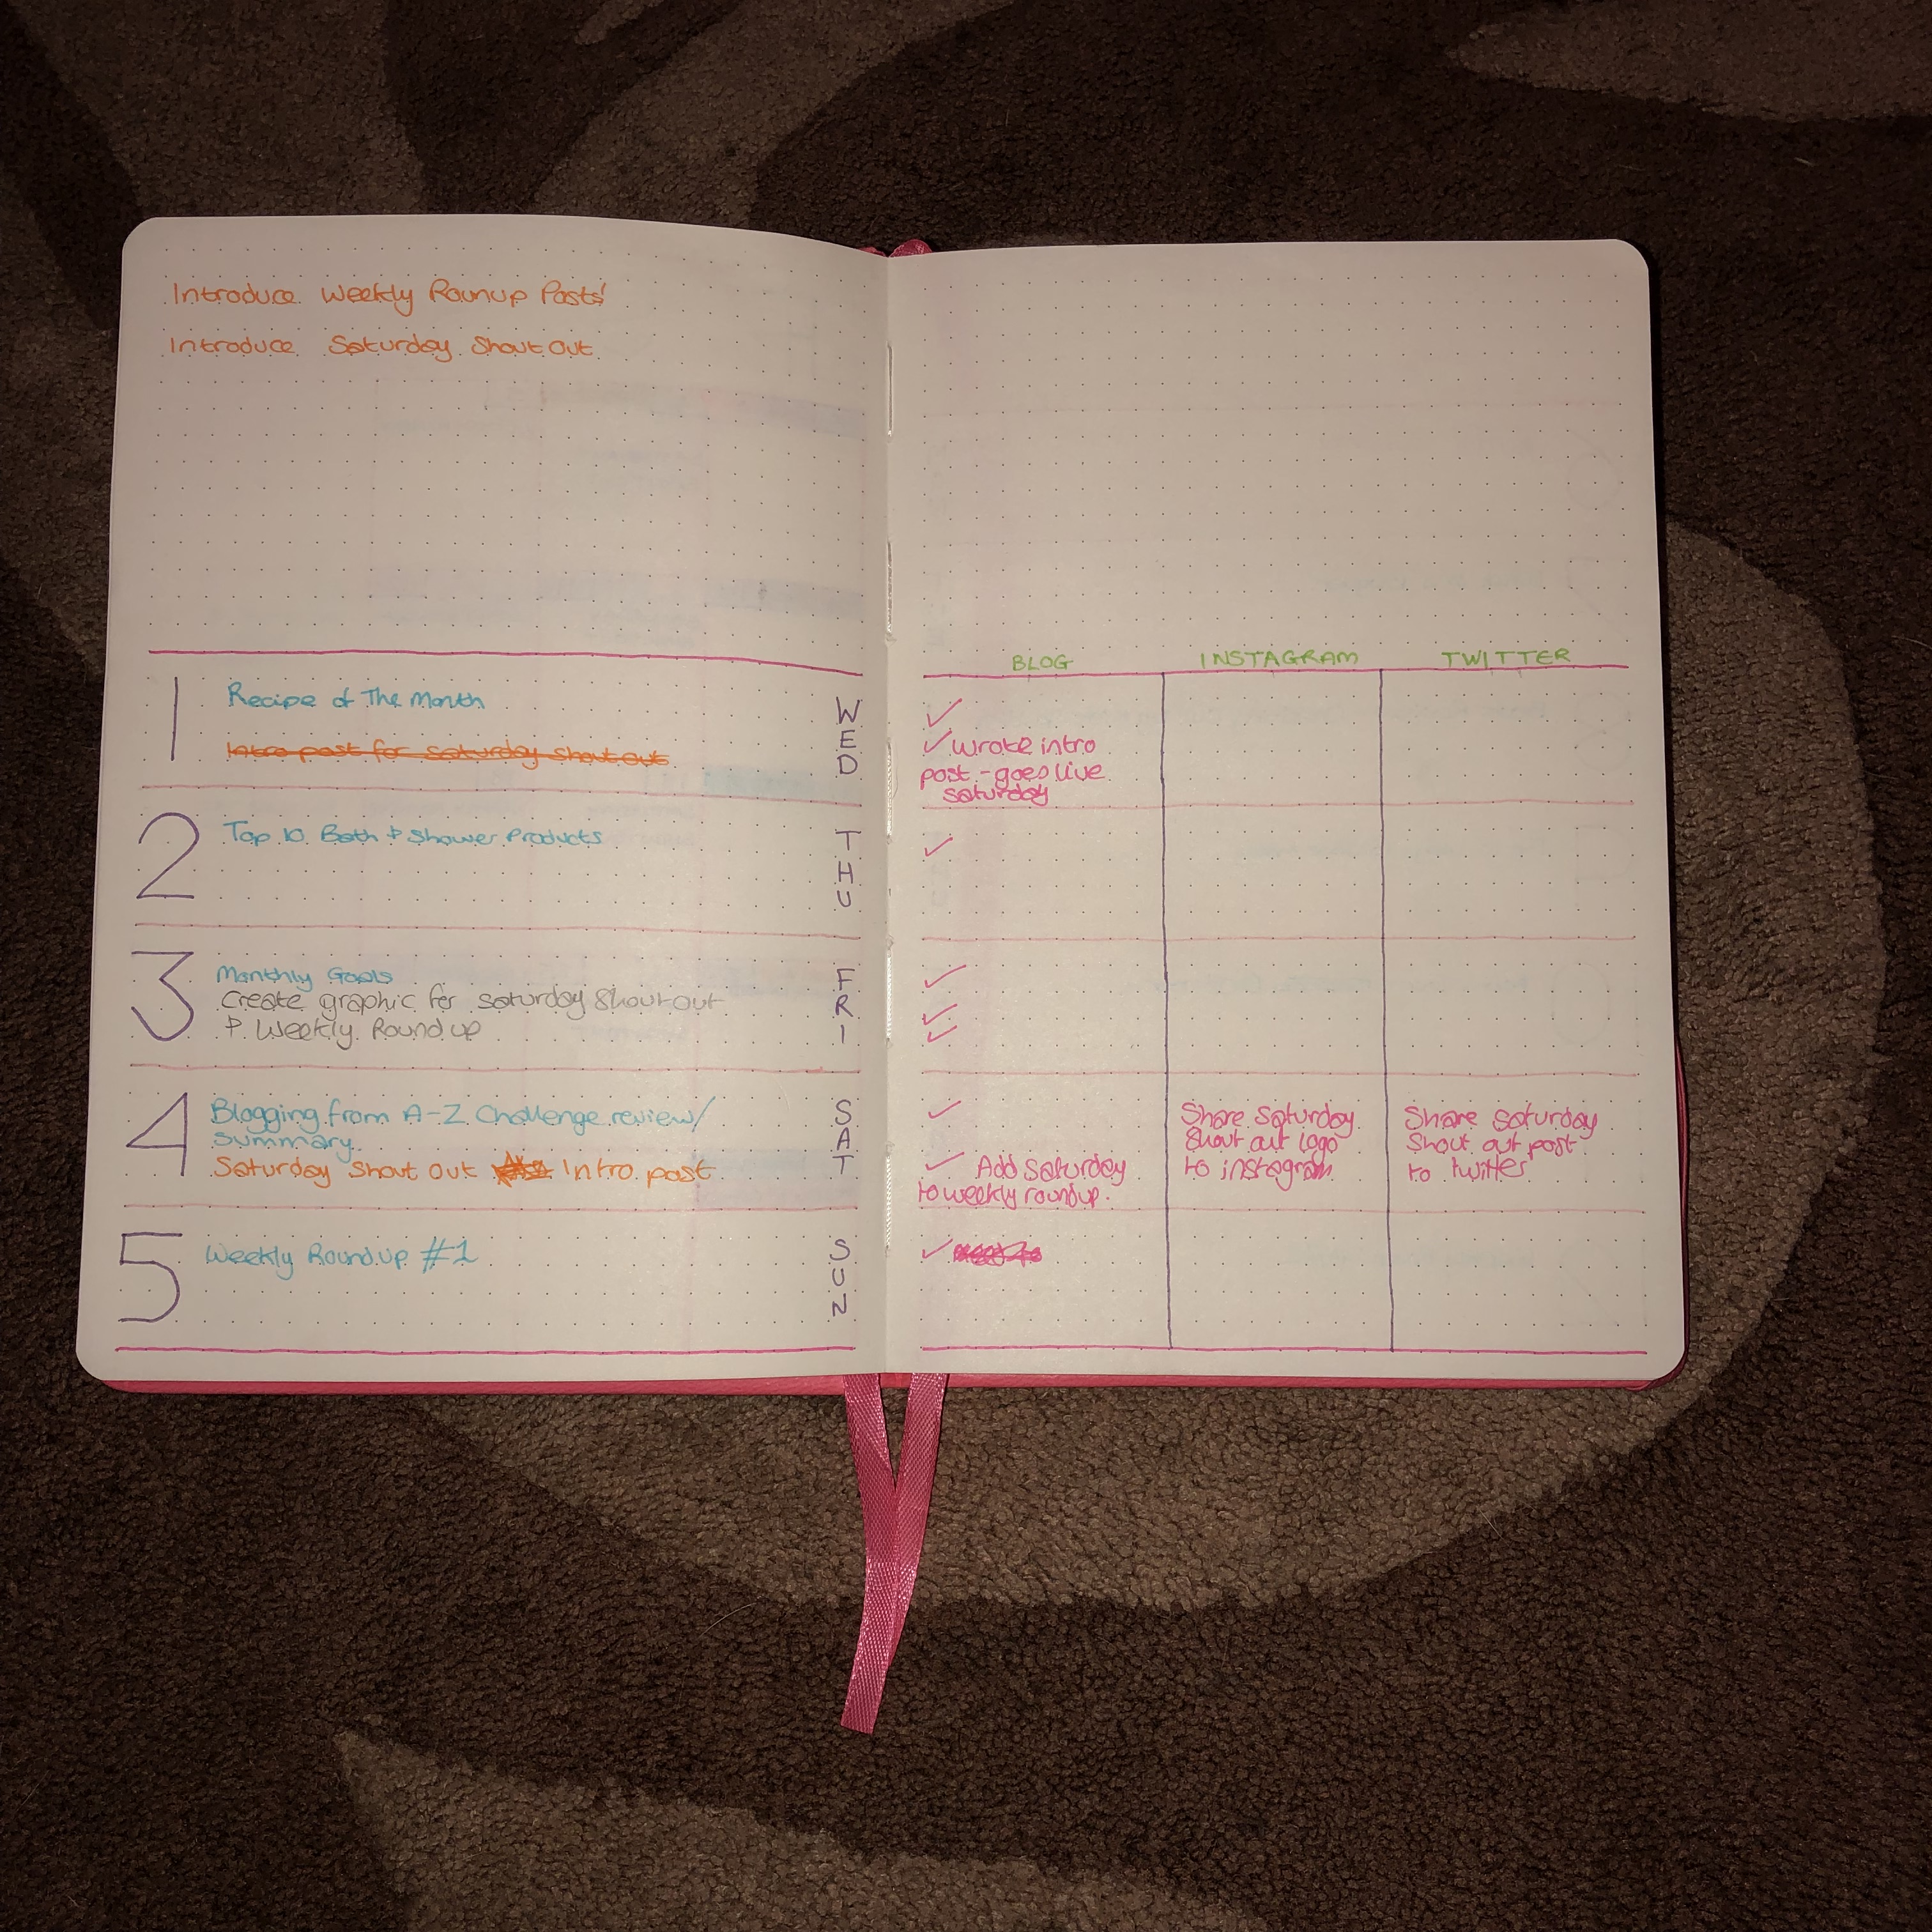 Introduce Weekly Rounup Posts'
Introduce Saturday Shout Out
BLOG INSTAGRAM TWITTER
1
Recipe of The Month
Intro post for Saturday Shout out
WED
✓
✓ wrote intro
post - goes live
saturday
2
Top 10 Bath & Shower Products
THU
✓
3
Monthly Goals
Create graphic for Saturday Shout out
& Weekly Roundup
FRI
✓
✓
✓
4
Blogging from A-Z Challenge review/
Summary
Saturday Shout out Intro post
SAT
✓
✓ Add Saturday
to weekly roundup.
Share Saturday
Shout out logo
to instagram
Share Saturday
Shout out post
to twitter
5
Weekly Roundup #1
SUN
✓